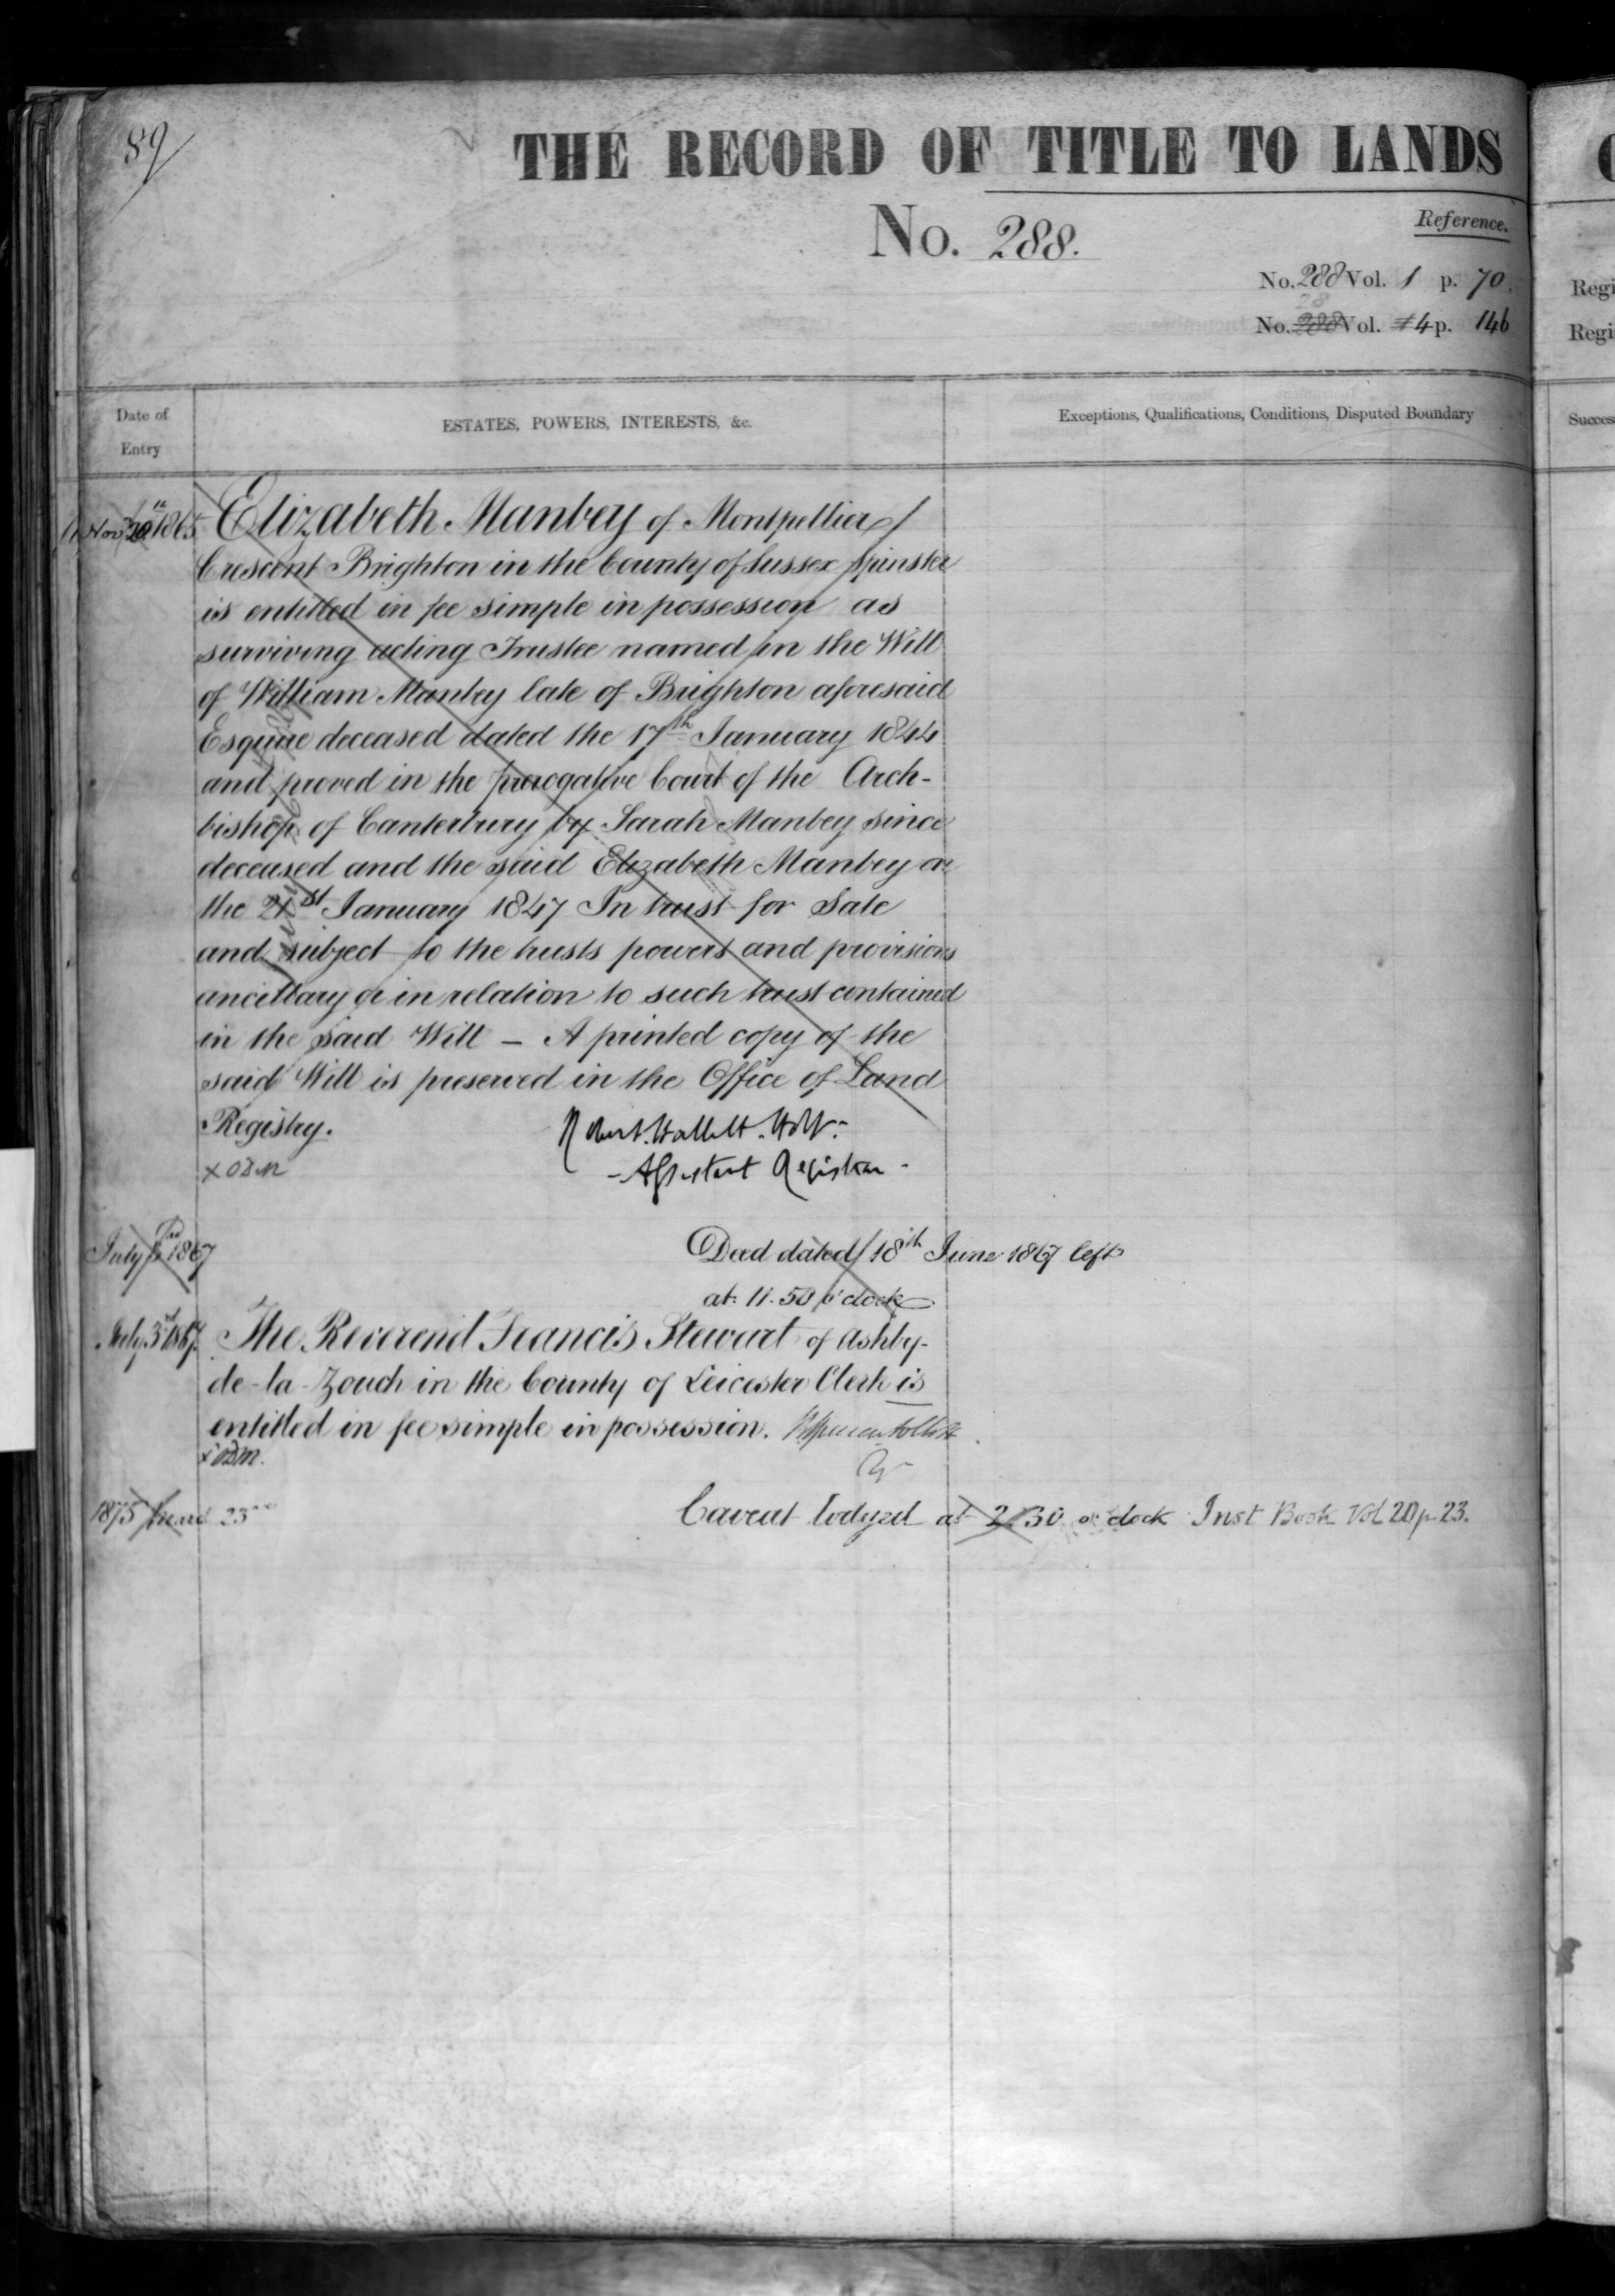 89
THE RECORD OF TITLE TO LANDS
No. 288.
Reference.
No. 288 Vol. 1 p. 70.
28
No. 288 Vol. 4 p. 146
Date of
Entry
ESTATES, POWERS, INTERESTS, &c.
Exceptions, Qualifications, Conditions, Disputed Boundary
Regi
Regi
Succes
Nov 20th 1865
Elizabeth Manbey of Montpellier
Crescent Brighton in the County of Sussex Spinster
is entitled in fee simple in possession as
surviving acting Trustee named in the Will
of William Manbey late of Brighton aforesaid
Esquire deceased dated the 17th January 1844
and proved in the prerogative Court of the Arch-
bishop of Canterbury by Sarah Manbey since
deceased and the said Elizabeth Manbey on
the 21st January 1847 In trust for Sale
and subject to the trusts powers and provisions
ancillary or in relation to such trust contained
in the said Will – A printed copy of the
said Will is preserved in the Office of Land
Registry.
Robert Hallett Holt.
- Assistant Registrar -
July 1867
Deed dated 18th June 1867 left
at 11.50 o'clock
July 3rd 1867
The Reverend Francis Stewart of Ashby-
de-la-Zouch in the County of Leicester Clerk is
entitled in fee simple in possession.
1875 23rd
Caveat lodged at 2.30 o'clock Inst Book Vol 20 p. 23.